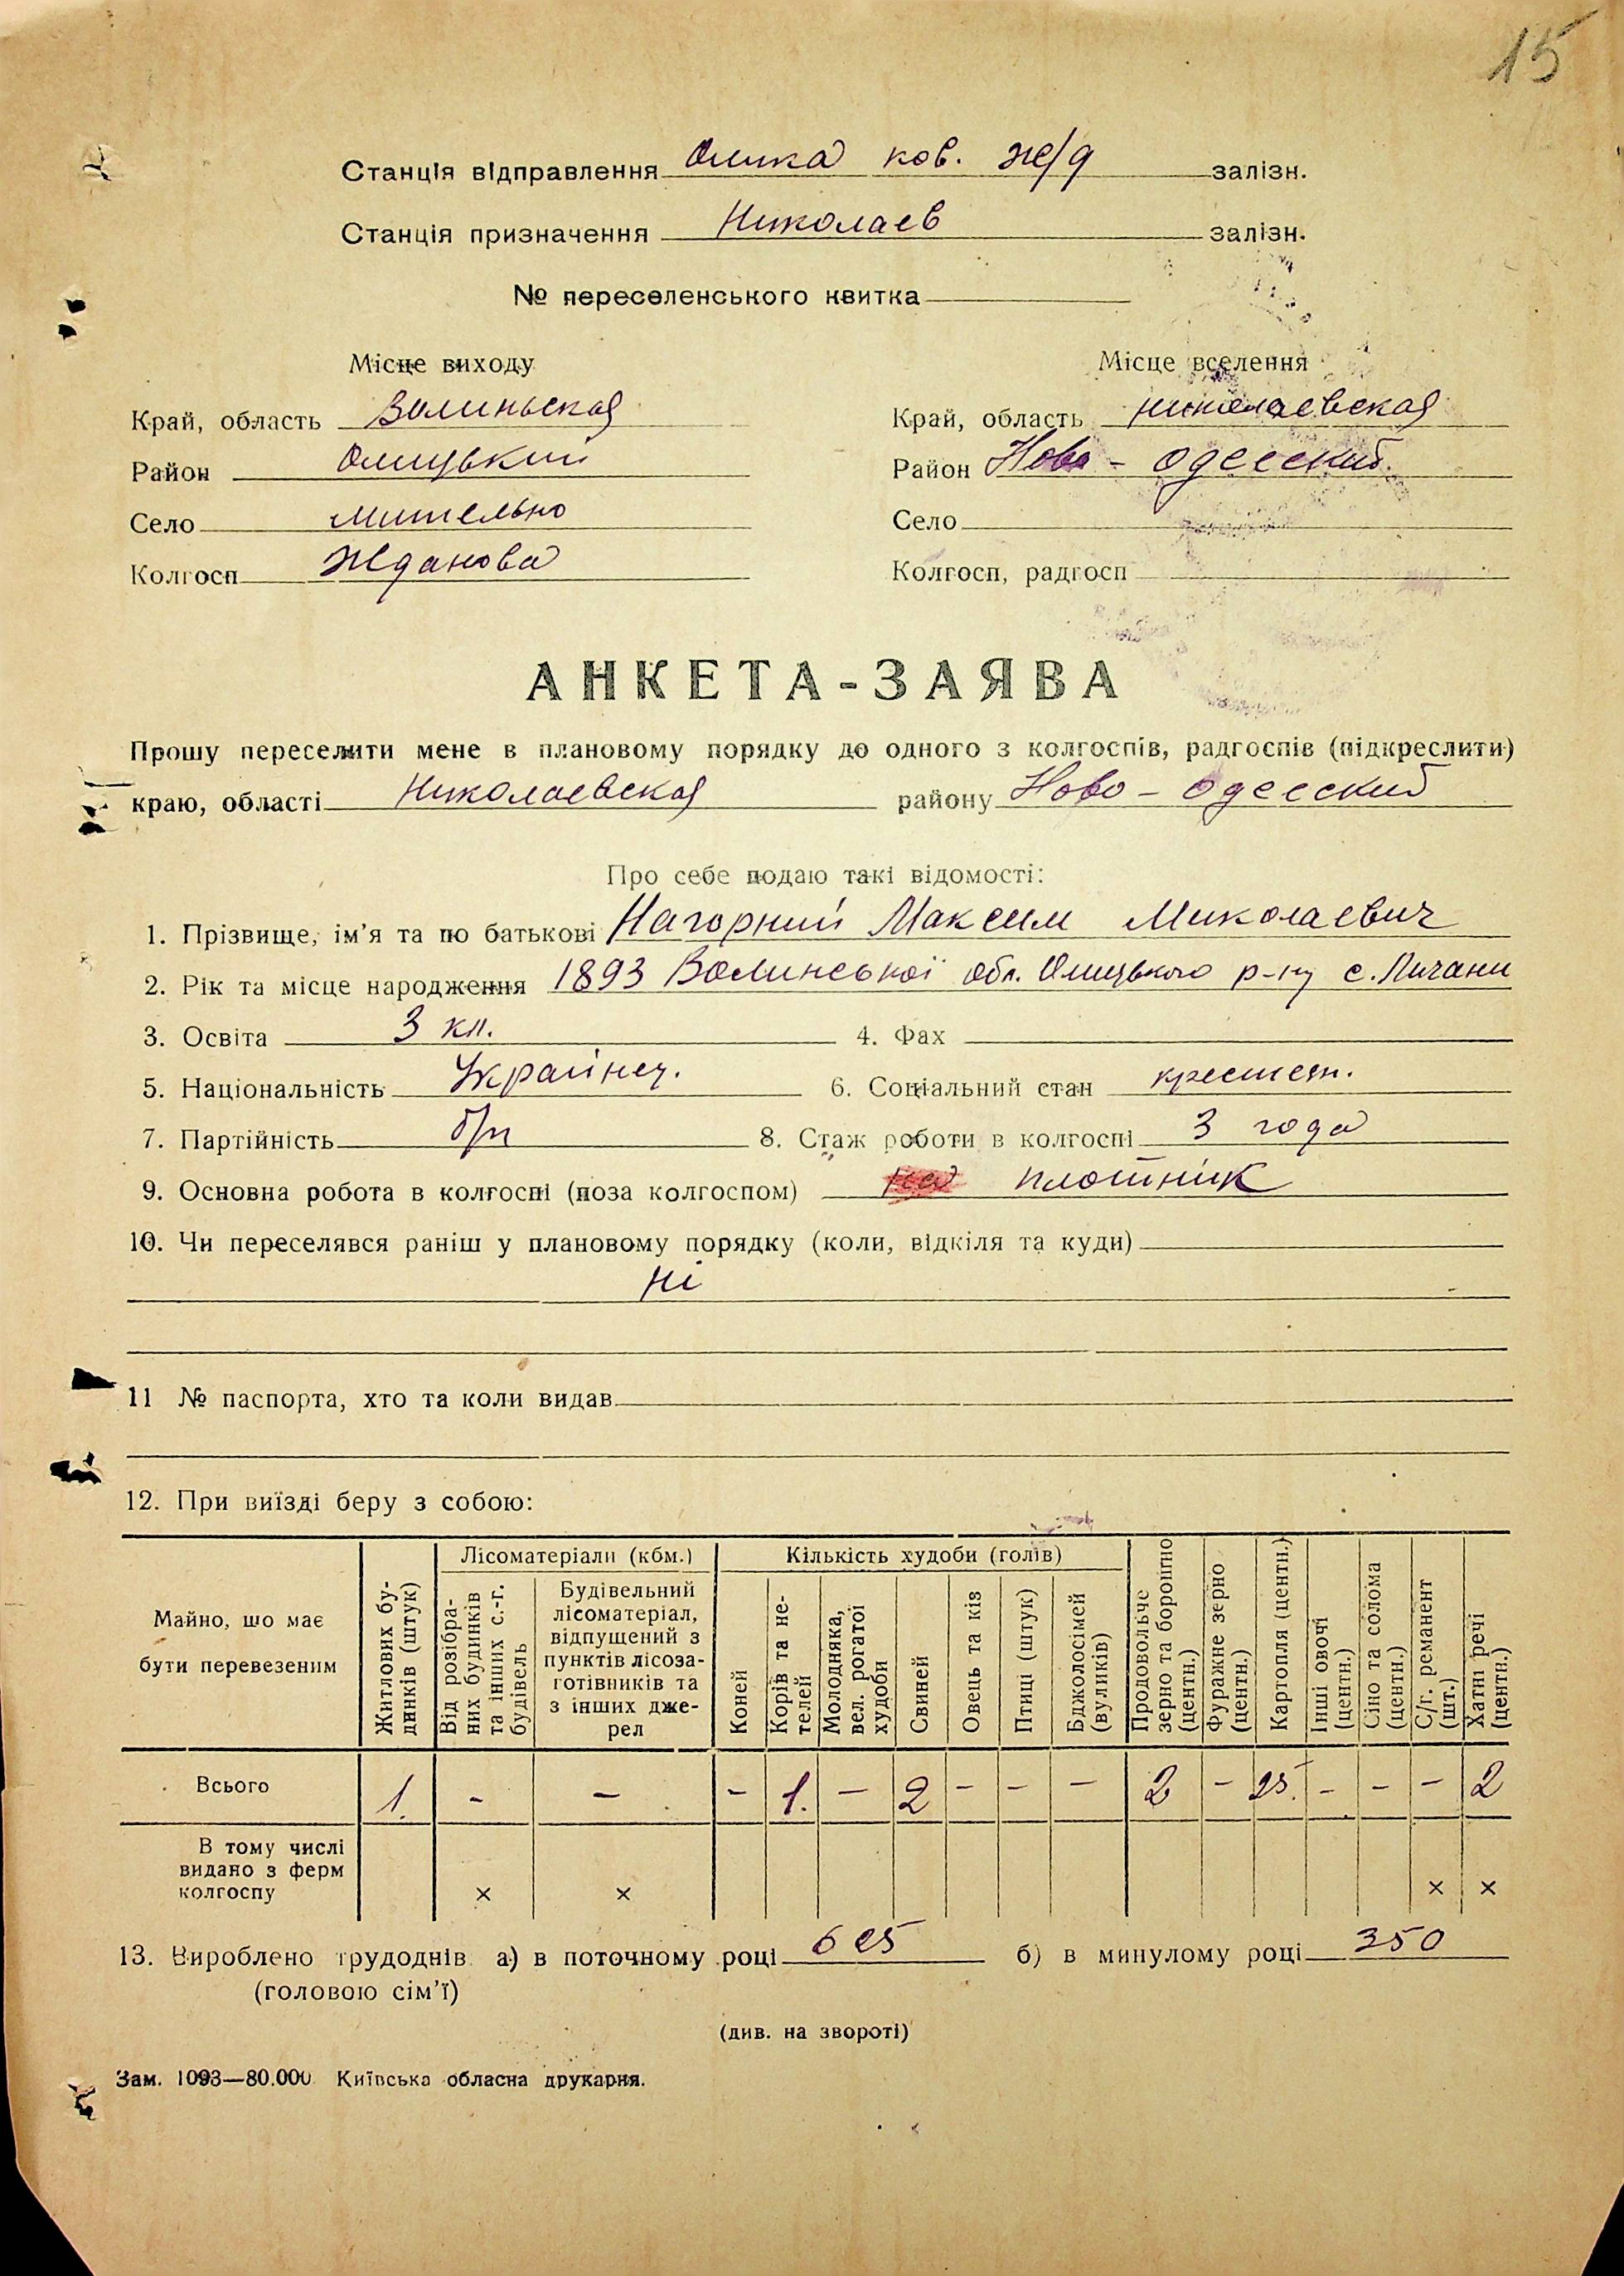 15
Станція відправлення Олика ков. ж/д залізн.
Станція призначення Николаев залізн.
№ переселенського квитка
Місце виходу
Край, область Волиньская
Район Олицький
Село Мительно
Колгосп Жданова
Місце вселення
Край, область Николаевская
Район Ново - Одесский.
Село
Колгосп, радгосп
АНКЕТА-ЗАЯВА
Прошу переселити мене в плановому порядку до одного з колгоспів, радгоспів (підкреслити)
краю, області Николаевская району Ново - Одесский
Про себе подаю такі відомості:
1. Прізвище, ім'я та по батькові Нагорний Максим Миколаевич
2. Рік та місце народження 1893 Волинської обл. Олицького р-ну с. Личани
3. Освіта 3 кл. 4. Фах
5. Національність Украінец. 6. Соціальний стан крестьян.
7. Партійність б/п 8. Стаж роботи в колгоспі 3 года
9. Основна робота в колгоспі (поза колгоспом) плотник
10. Чи переселявся раніш у плановому порядку (коли, відкіля та куди)
Ні
11 № паспорта, хто та коли видав
12. При виїзді беру з собою:
Майно, що має бути перевезеним
Житлових будинків (штук)
Лісоматеріали (кбм.)
Від розібраних будинків та інших с.-г. будівель
Будівельний лісоматеріал, відпущений з пунктів лісозаготівників та з інших джерел
Кількість худоби (голів)
Коней
Корів та нетелей
Молодняка, вел. рогатої худоби
Свиней
Овець та кіз
Птиці (штук)
Бджолосімей (вуликів)
Продовольче зерно та борошно (центн.)
Фуражне зерно (центн.)
Картопля (центн.)
Інші овочі (центн.)
Сіно та солома (центн.)
С/г. реманент (шт.)
Хатні речі (центн.)
Всього 1. - - - 1. - 2 - - - 2 - 25. - - - 2
В тому числі видано з ферм колгоспу × × × ×
13. Вироблено трудоднів а) в поточному році 625 б) в минулому році 350
(головою сім'ї)
(див. на звороті)
Зам. 1093—80.000 Київська обласна друкарня.